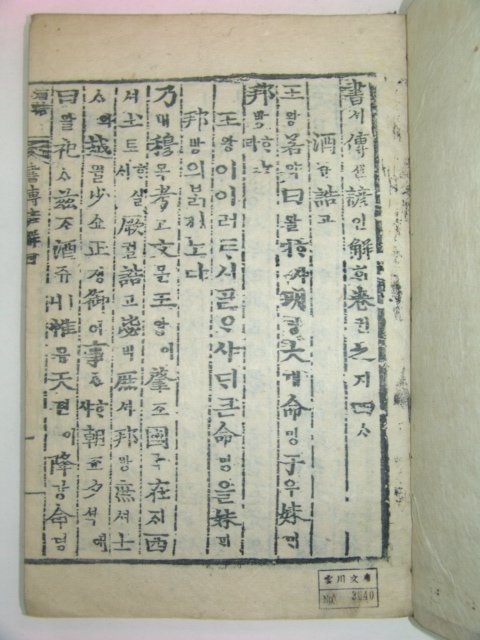 書셔傳젼諺언解ᄒᆡ卷권之지四ᄉᆞ
酒쥬誥고
王왕若약曰왈明명大대命명于우妹ᄆᆡ
邦방ᄒᆞ라
王왕이이러ᄐᆞ시ᄀᆞᆯᄋᆞ샤ᄃᆡ큰命명을妹ᄆᆡ
邦방의ᄇᆞᆰ키노다
乃내穆목考고文문王왕이肇죠國국在ᄌᆡ西
셔土토ᄒᆞ실ᄉᆡ厥궐誥고毖비庶셔邦방庶셔士
ᄉᆞ와越월少쇼正졍御어事ᄉᆞᄒᆞ샤朝죠夕셕애
曰왈祀ᄉᆞ玆ᄌᆞ酒쥬ㅣ니惟유天텬이降강命명
書傳諺解四
No. 3040